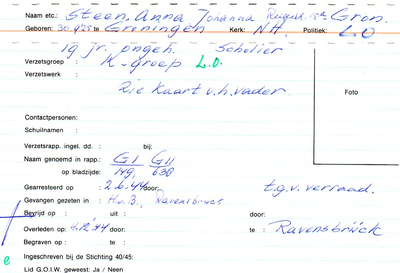 Naam etc.: Steen, Anna Johanna Gron.
Geboren: 30.9.25 te Groningen Kerk: N.H. Politiek: LO
19 jr. ongeh. Scholier
Verzetsgroep : K-groep L.O.
Verzetswerk :
Zie Kaart v.h. vader
Foto
Contactpersonen:
Schuilnamen :
Verzetsrapp. ingel. dd. : bij:
Naam genoemd in rapp.: GI GII
op bladzijde: 149, 638
Gearresteerd op : 2.6.44 door: t.g.v. verraad.
Gevangen gezeten in : H.v.B., Ravensbrück
Bevrijd op : uit : door:
Overleden op : 4.12.44 door: te : Ravensbrück
Begraven op : te :
e Ingeschreven bij de Stichting 40/45:
Lid G.O.I.W. geweest: Ja / Neen